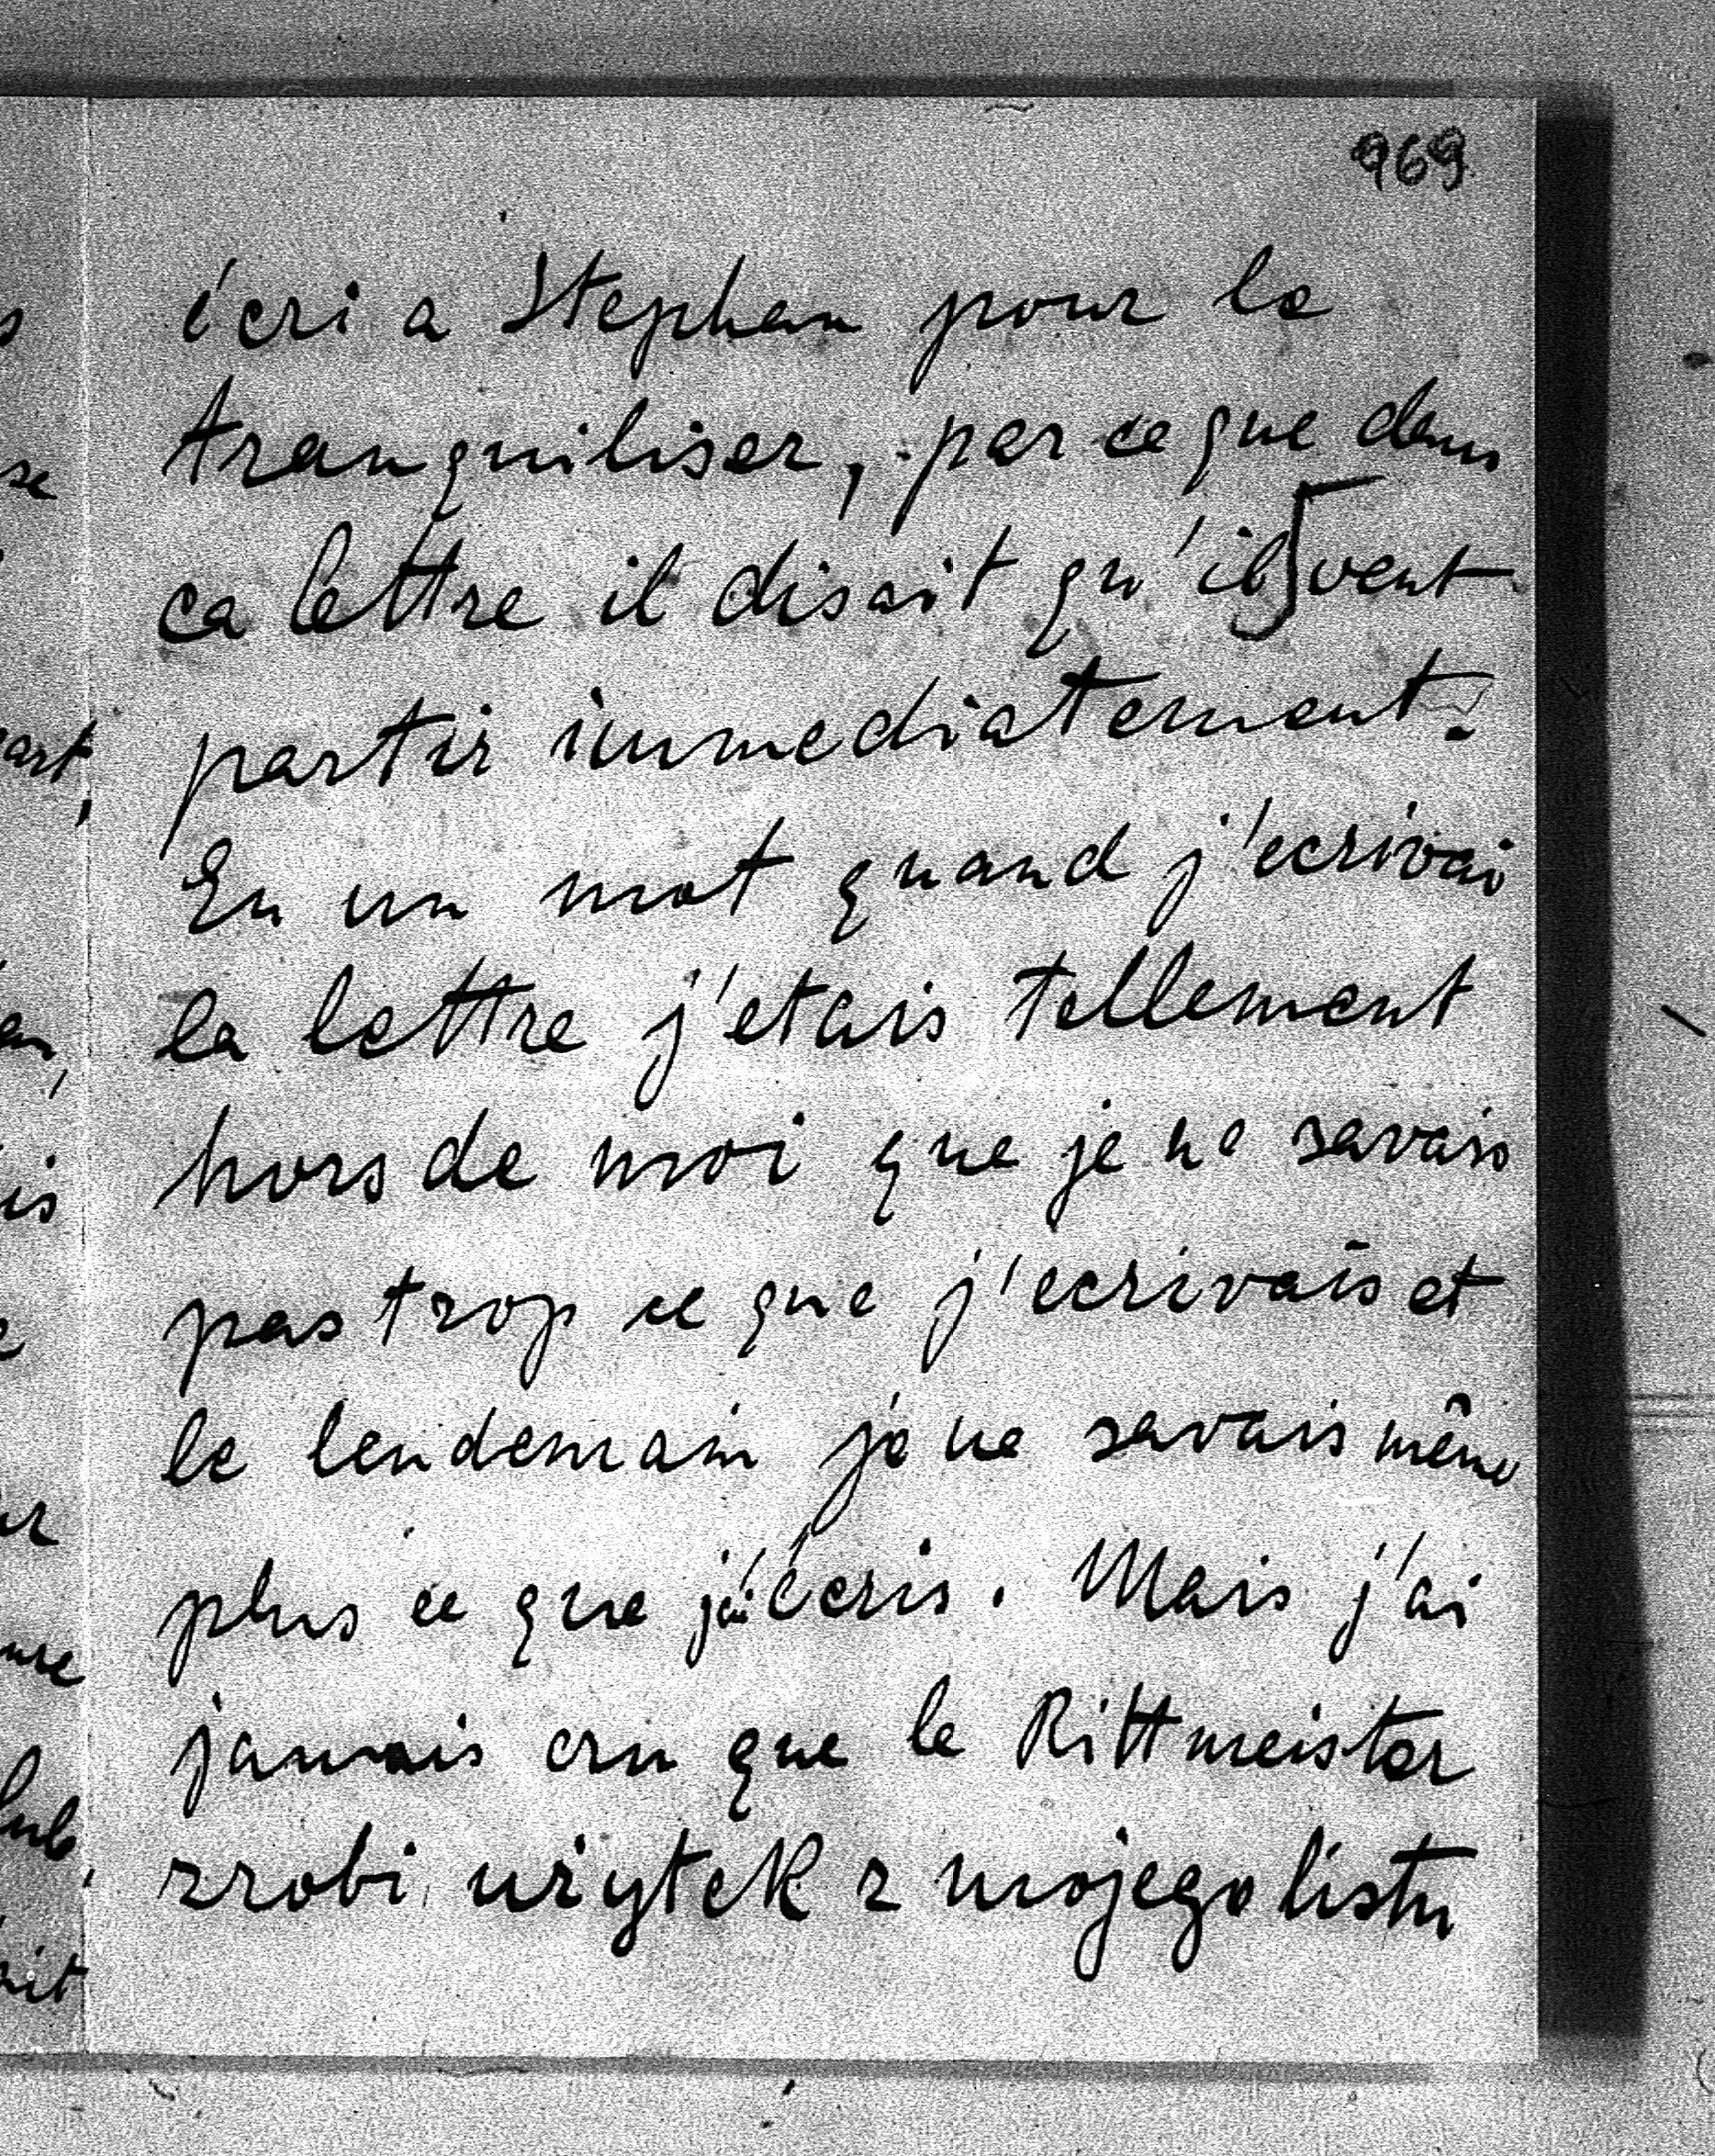 969
écri a Stephan pour le
tranquiliser, par ce que dans
ca lettre il disait qu'il veut
partir immediatement.
En un mot quand j'ecrivai
la lettre j'etais tellement
hors de moi que je ne savais
pas trop ce que j'ecrivais et
le lendemain je ne savais même
plus ce que j'ai écris. Mais j'ai
jamais cru que le Rittmeister
zrobi użytek z mojego listu